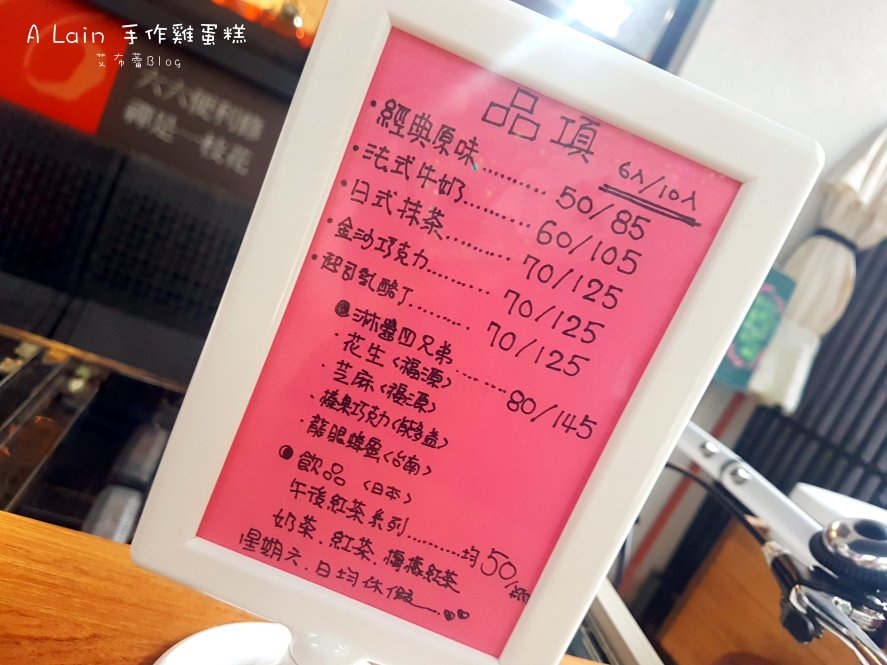 A Lain 手作雞蛋糕
艾布蕾Blog
六六便利修
禪是一枝花
品項
6入/10入
·經典原味.......... 50/85
·法式牛奶.......... 60/105
·日式抹茶.......... 70/125
·金沙巧克力........ 70/125
·起司乳酪丁........ 70/125
淋醬四兄弟........ 80/145
·花生<福源>
·芝麻<福源>
·榛果巧克力
·龍眼蜂蜜<台南>
飲品<日本>
午後紅茶系列
奶茶.紅茶.檸檬紅茶.......均50/瓶
星期六.日均休假